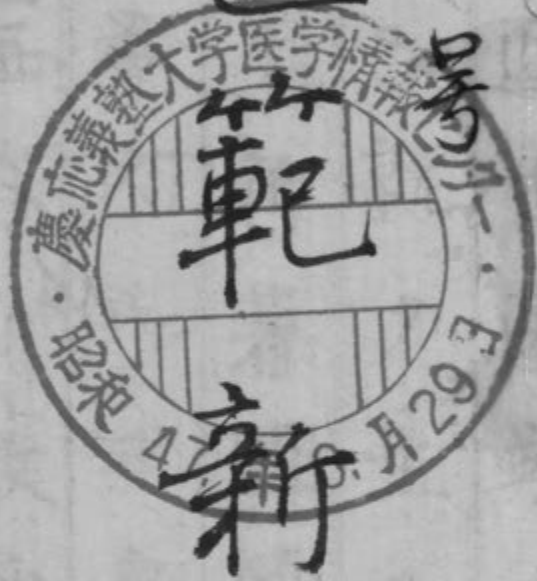 慶応義塾大学医学情報センター
昭和47年8月29日
号
範
新